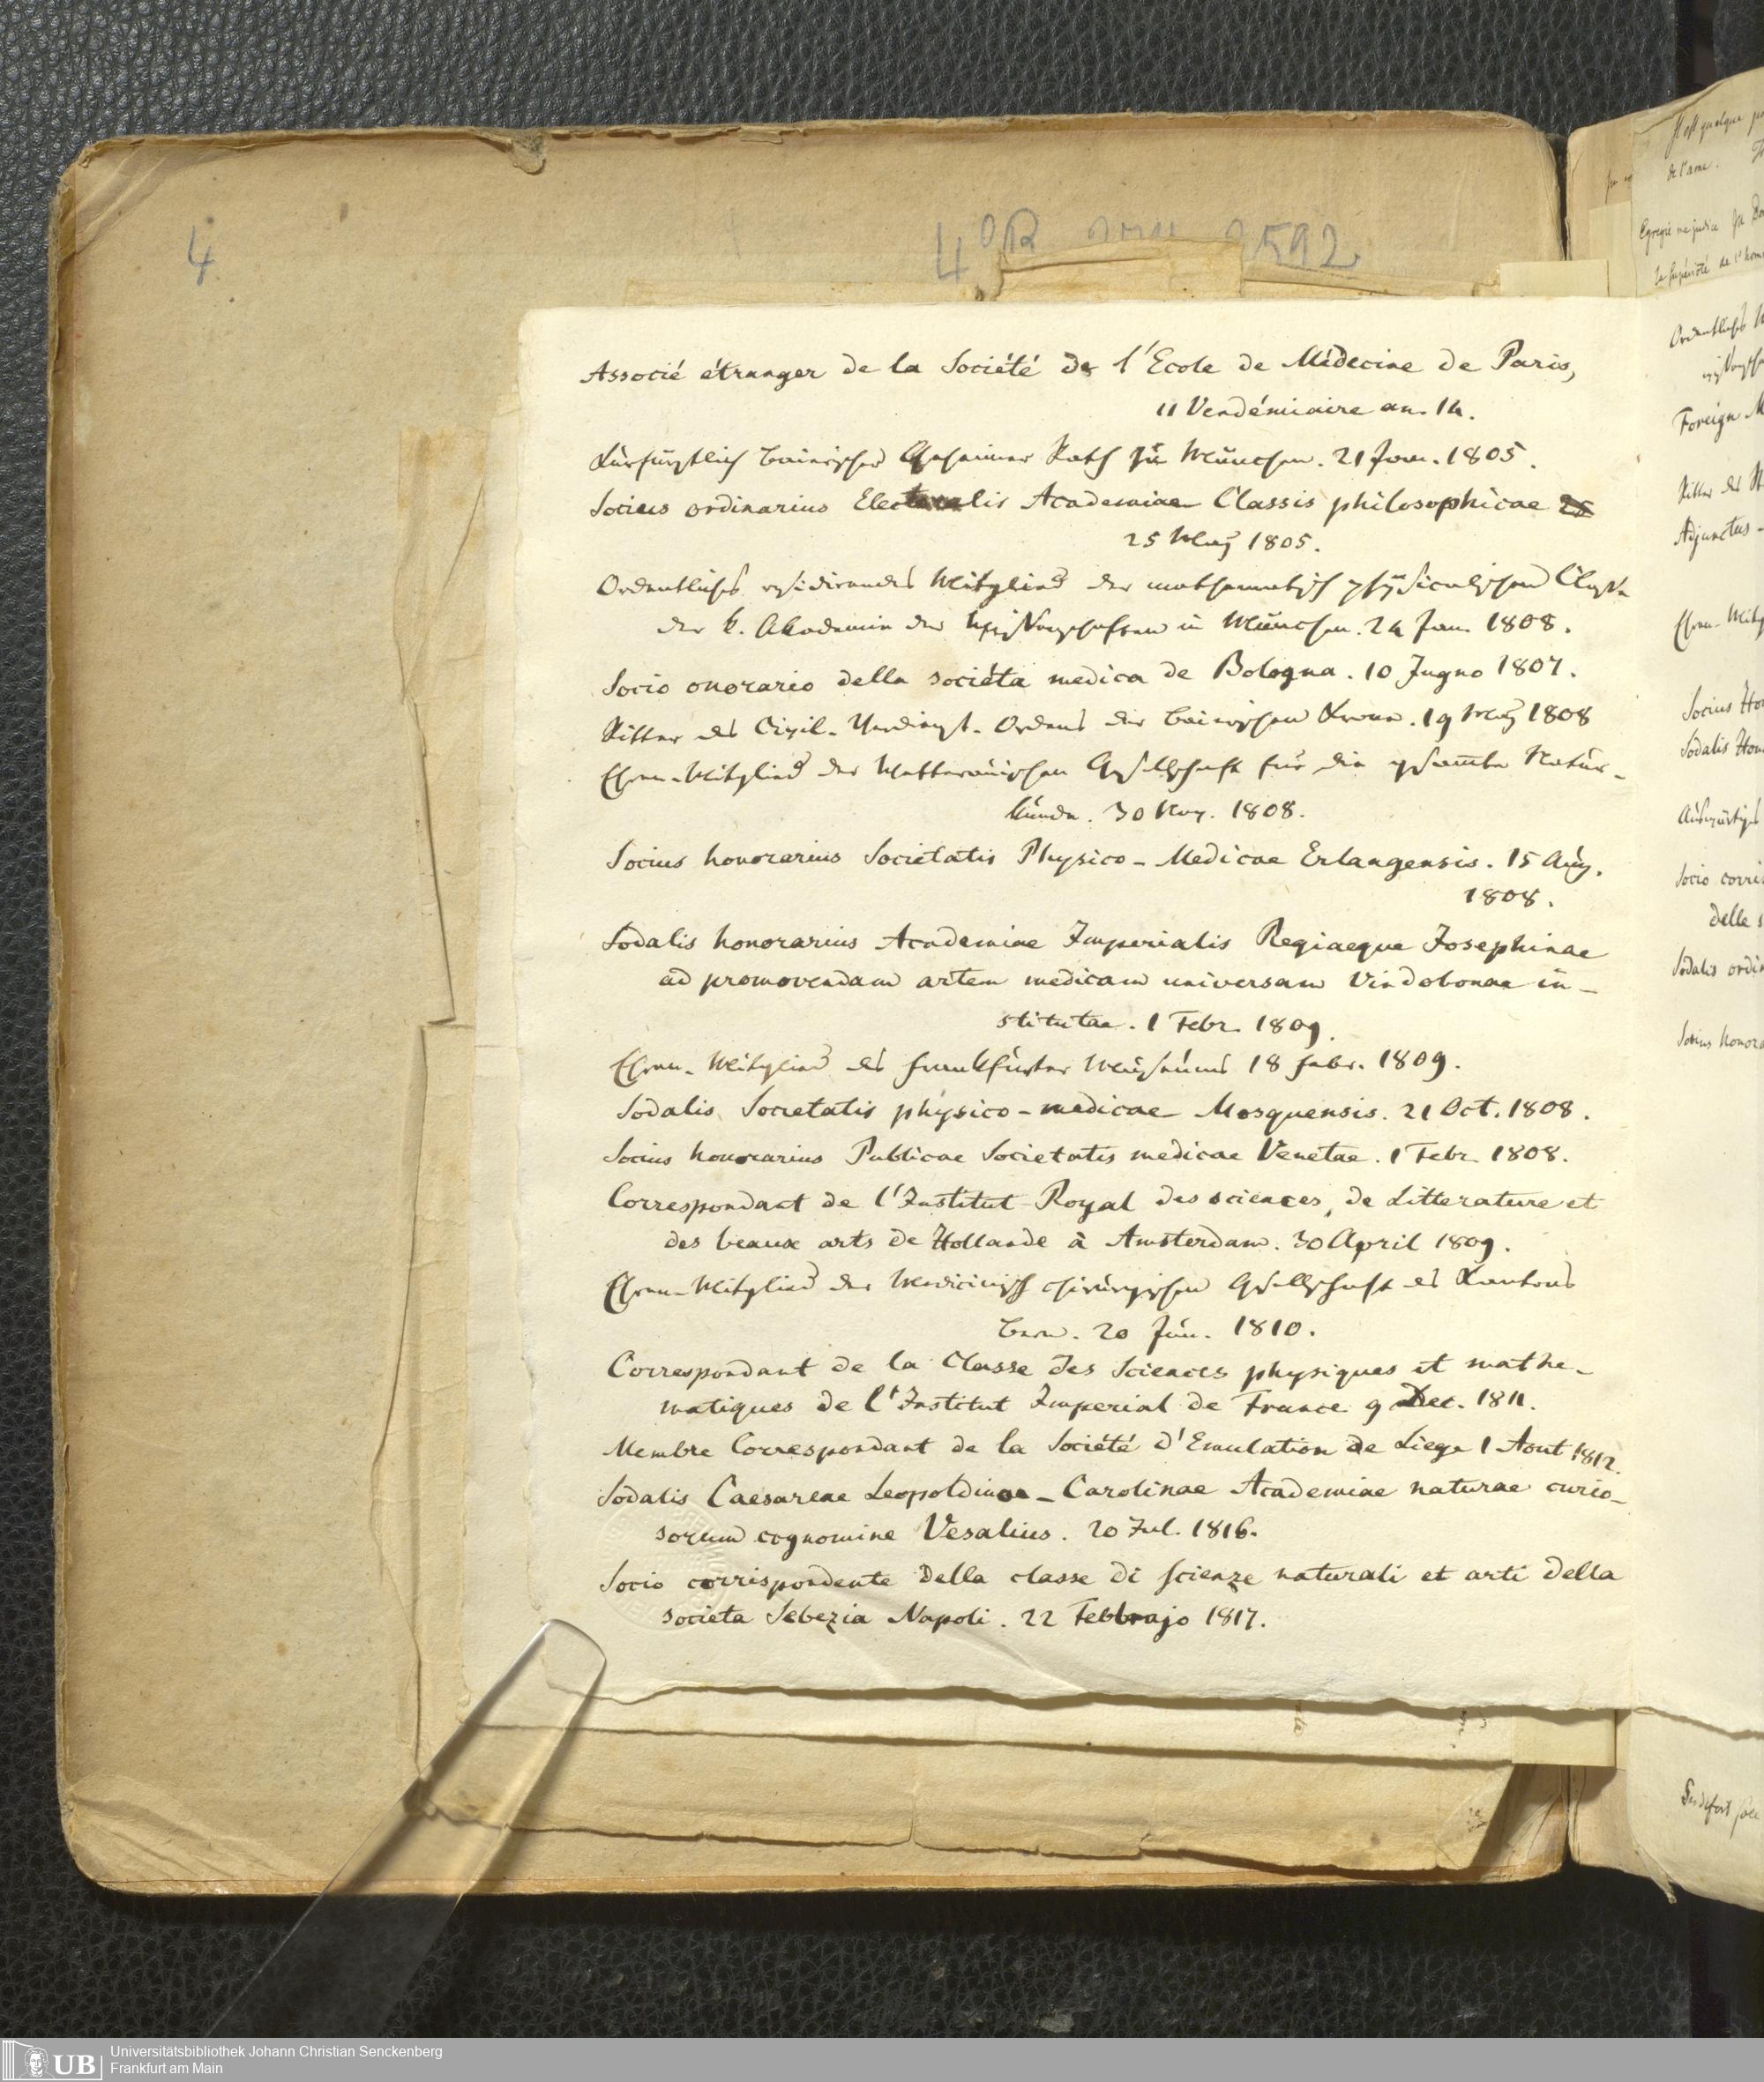 4
4° R 2592
Associé étranger de la Société de l'Ecole de Médecine de Paris,
11 Vendémiaire an. 14.
Kurfürstlich bairischer Geheimer Rath zu München. 21 Jan. 1805.
Socius ordinarius Electoralis Academiae Classis philosophicae 25
25 May 1805.
Ordentliches residirendes Mitglied der mathematisch physicalischen Classe
der k. Akademie der Wissenschaften in München. 24 Jan. 1808.
Socio onorario della sociéta medica de Bologna. 10 Jugno 1807.
Ritter des Civil-Verdienst-Ordens der bairischen Krone. 19 May 1808
Ehren-Mitglied der Wetterauischen Gesellschaft für die gesamte Natur-
kunde. 30 Nov. 1808.
Socius honorarius Societatis Physico-Medicae Erlangensis. 15 Aug.
1808.
Sodalis honorarius Academiae Imperialis Regiaeque Josephinae
ad promovendam artem medicam universam Vindobonae in-
stitutae. 1 Febr. 1809.
Ehren-Mitglied des Frankfurter Museums 18 Febr. 1809.
Sodalis Societatis physico-medicae Mosquensis. 21 Oct. 1808.
Socius honorarius Publicae Societatis medicae Venetae. 1 Febr. 1808.
Correspondant de l'Institut Royal des sciences, de Litterature et
des beaux arts de Hollande à Amsterdam. 30 April 1809.
Ehren-Mitglied der Medicinisch chirurgischen Gesellschaft des Kantons
Bern. 20 Jun. 1810.
Correspondant de la Classe des Sciences physiques et mathe-
matiques de l'Institut Imperial de France 9 Dec. 1811.
Membre Correspondant de la Société d'Emulation de Liege 1 Aout 1812.
Sodalis Caesareae Leopoldinae-Carolinae Academiae naturae curio-
sorum cognomine Vesalius. 20 Jul. 1816.
Socio corrispondente della classe di scienze naturali et arti della
societa Sebezia Napoli. 22 Febbrajo 1817.
Il est quelque
de l'ame.
Egregié me judice
la superiorité de l'hom
Ordentliches
Foreign M
Ritter des
Adjunctus-
Ehren-Mitg
Socius Ho
Sodalis Hon
Auswärtiges
Socio corri
delle s
Sodalis ordi
Socius honora
UB
Universitätsbibliothek Johann Christian Senckenberg
Frankfurt am Main